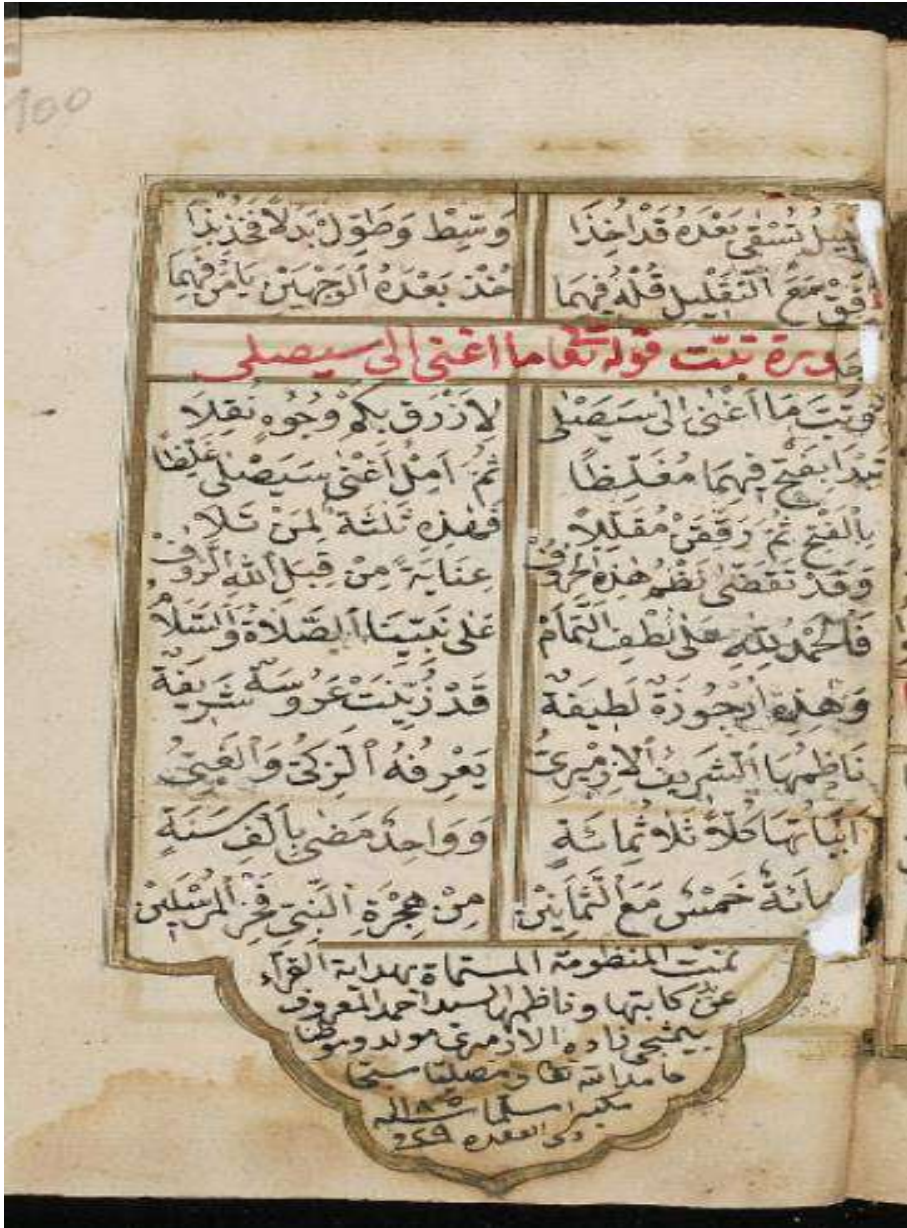 100
تُسْقٰى بَعْدَهُ قَدْ اُخِذَا وَسِّطْ وَطَوِّلْ بَدَلاً فَخُذْ بِذَا
مَعَ اَلتَّقْلِيلِ قُلْهُ فِيهِمَا خُذْ بَعْدَهُ اَلْوَجْهَيْنِ يَا مَنْ فَهِمَا
تبّت قوله تعا ما اغنى الى سيصلى
وَتَبَّ مَا اَغْنٰى اِلٰى سَيَصْلٰى لِاَزْرَقٍ بِكَمْ وُجُوهٍ نُقِلَا
بِفَتْحٍ فِيهِمَا مُغَلِّظًا ثُمَّ اَمِلْ اَغْنٰى سَيَصْلٰى غَلِّظًا
بِالْفَتْحِ ثُمَّ رَقِّقَنْ مُقَلِّلاً فَهٰذِهِ ثَلٰثَةٌ لِمَنْ تَلَا
وَقَدْ تَقَضّٰى نَظْمُ هٰذِهِ الْحُرُوفْ عِنَايَةً مِنْ قِبَلِ اللّٰهِ الرَّؤُفْ
فَالْحَمْدُ لِلّٰهِ عَلٰى لُطْفِ التَّمَامْ عَلٰى نَبِيِّنَا اَلصَّلَاةُ وَالسَّلَامْ
وَهٰذِهِ اُرْجُوزَةٌ لَطِيفَةٌ قَدْ زُيِّنَتْ عَرُوسَةٌ شَرِيفَةٌ
نَاظِمُهَا اَلشَّرِيفُ اَلْاِزْمِيرِىُّ يَعْرِفُهُ اَلزَّكِىُّ وَالْغَبِىُّ
اَبْيَاتُهَا كُلاًّ ثَلَاثُمِائَةٍ وَوَاحِدٌ مَضٰى بِاَلْفِ سَنَةٍ
مِائَةٌ خَمْسٌ مَعَ اَلثَّمَانِينْ مِنْ هِجْرَةِ اَلنَّبِىِّ فَخْرِ الْمُرْسَلِينْ
تمت المنظومة المسماة بهداية القرآء
عن كاتبها وناظمها السيد احمد المعروف
زاده الازميرى مولدا وموطنا
حامدا لله تعا ومصليا
مكبرا
ذى القعده ٢٩